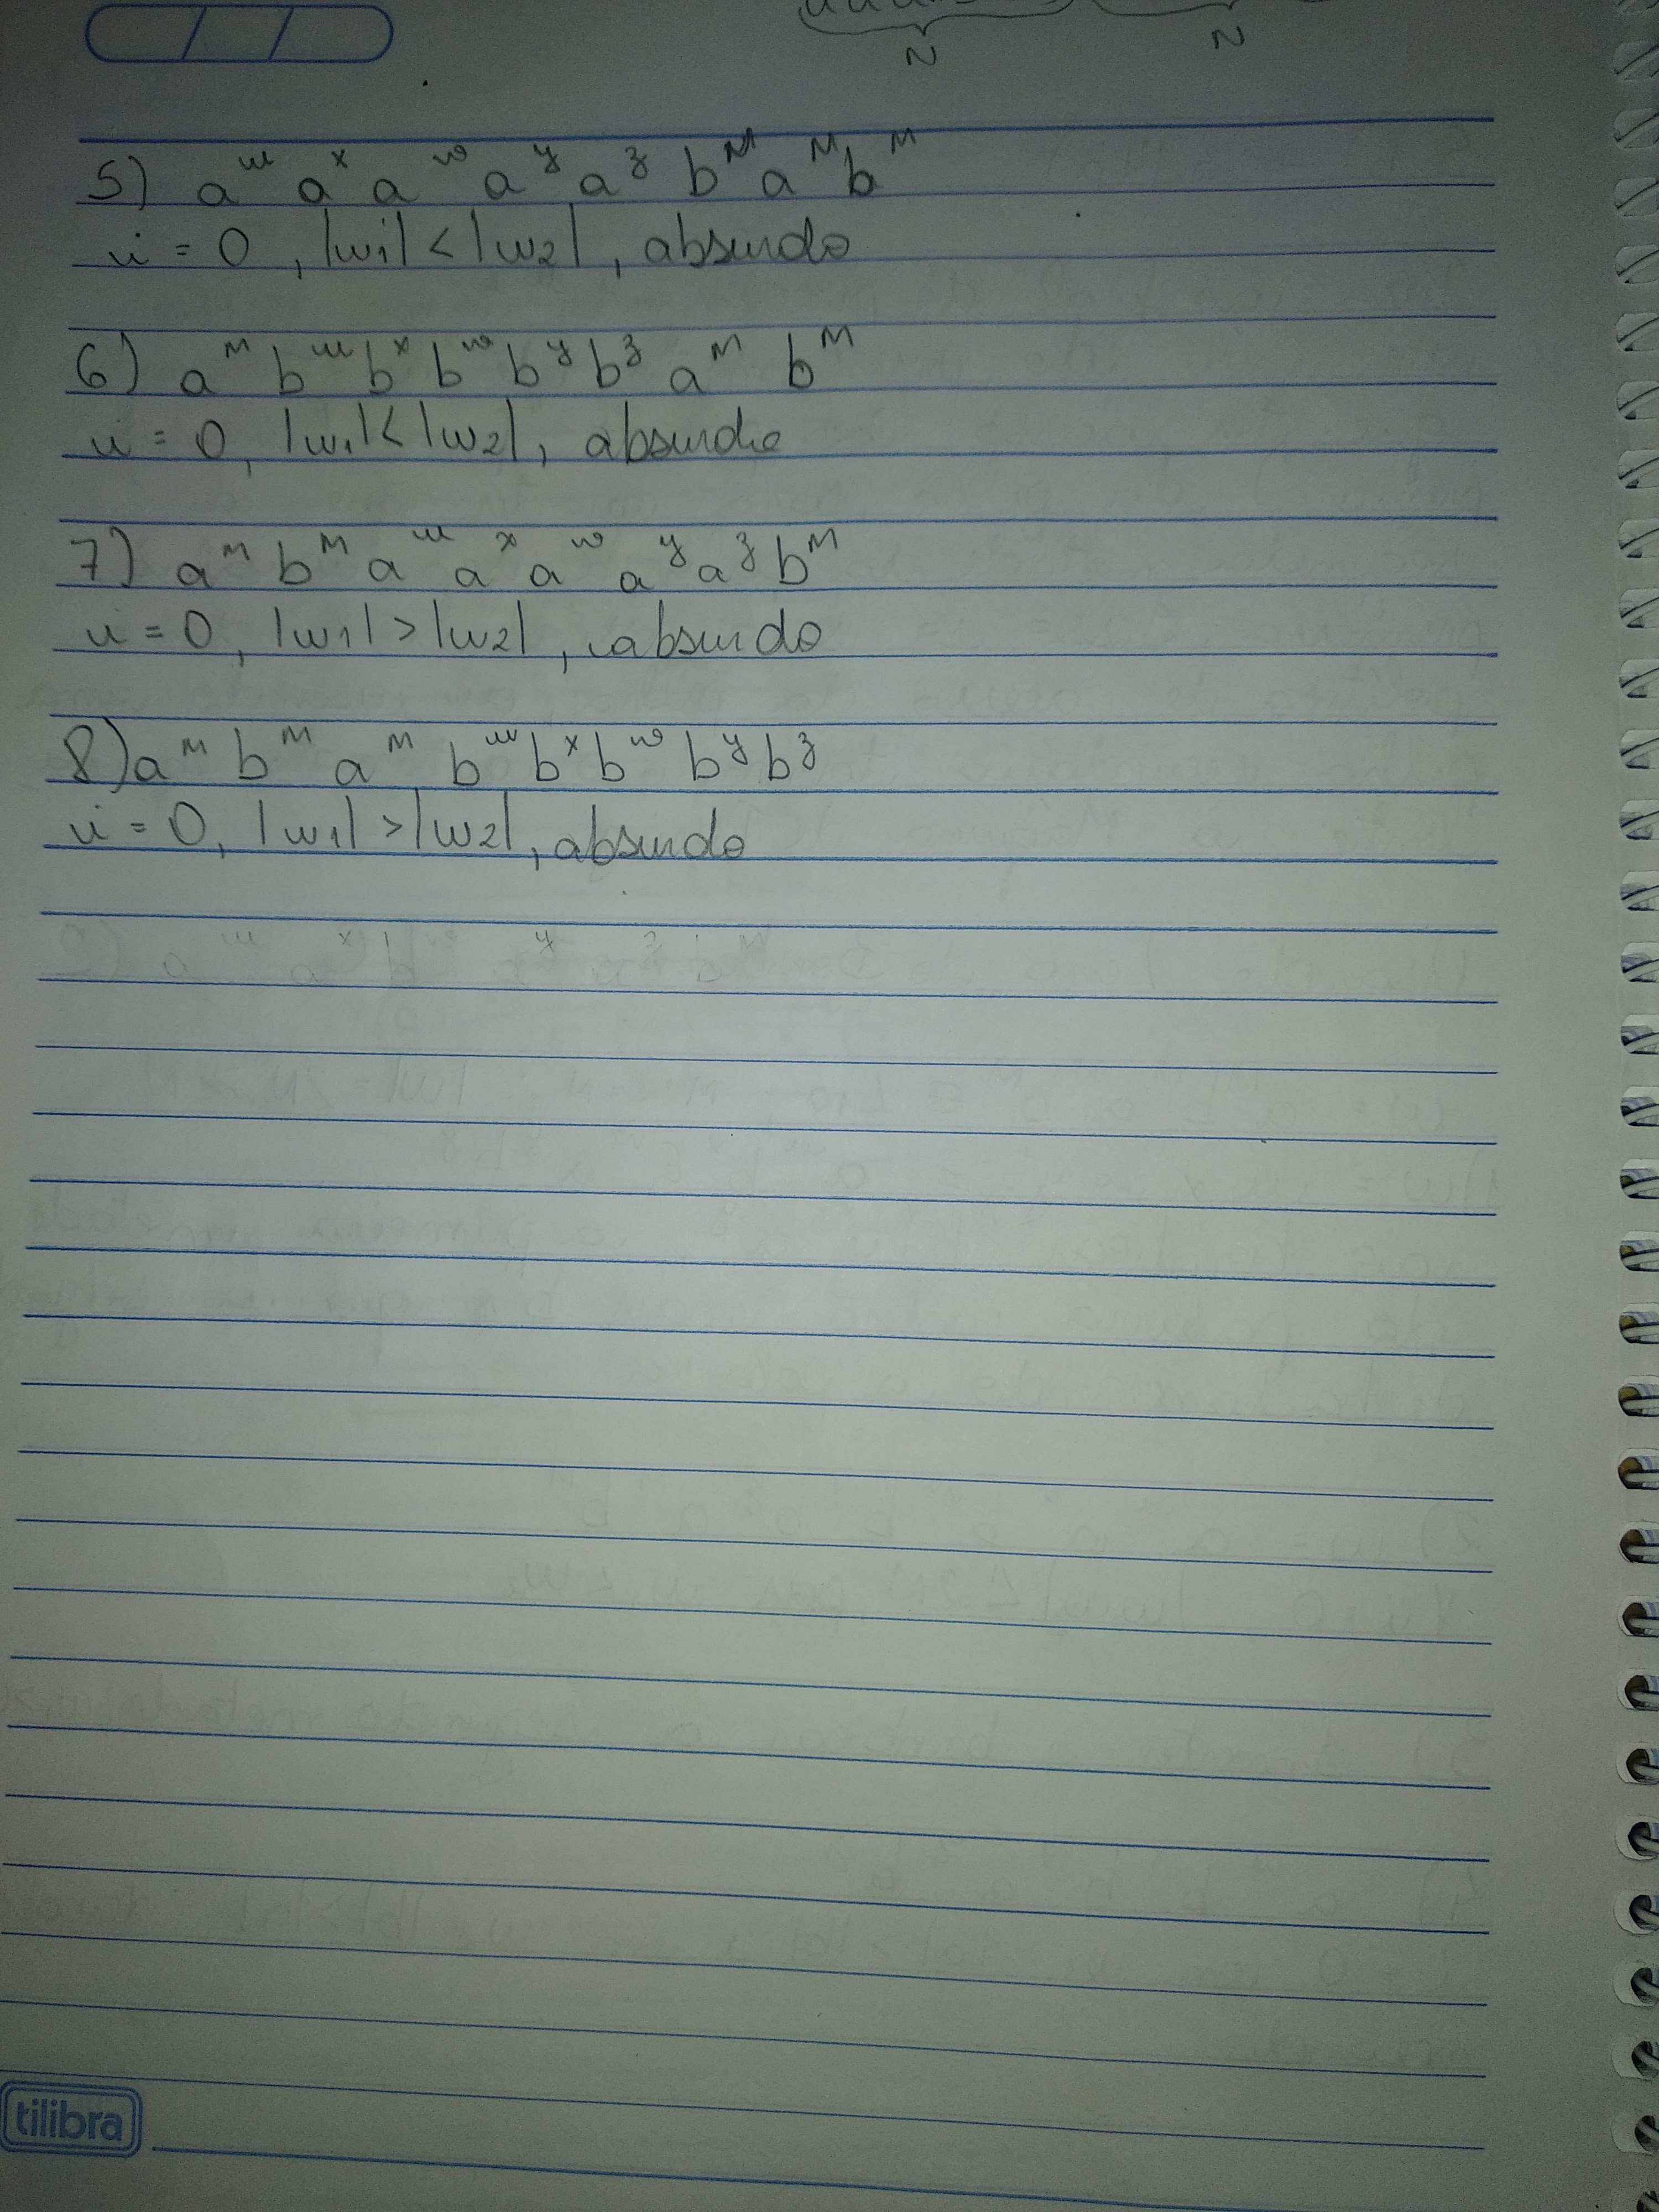 N N
5) a^u a^x a^w a^y a^z b^M a^M b^M
i = 0, |w1| < |w2|, absurdo
6) a^M b^u b^x b^w b^y b^z a^M b^M
i = 0, |w1| < |w2|, absurdo
7) a^M b^M a^u a^x a^w a^y a^z b^M
i = 0, |w1| > |w2|, absurdo
8) a^M b^M a^M b^u b^x b^w b^y b^z
i = 0, |w1| > |w2|, absurdo
tilibra